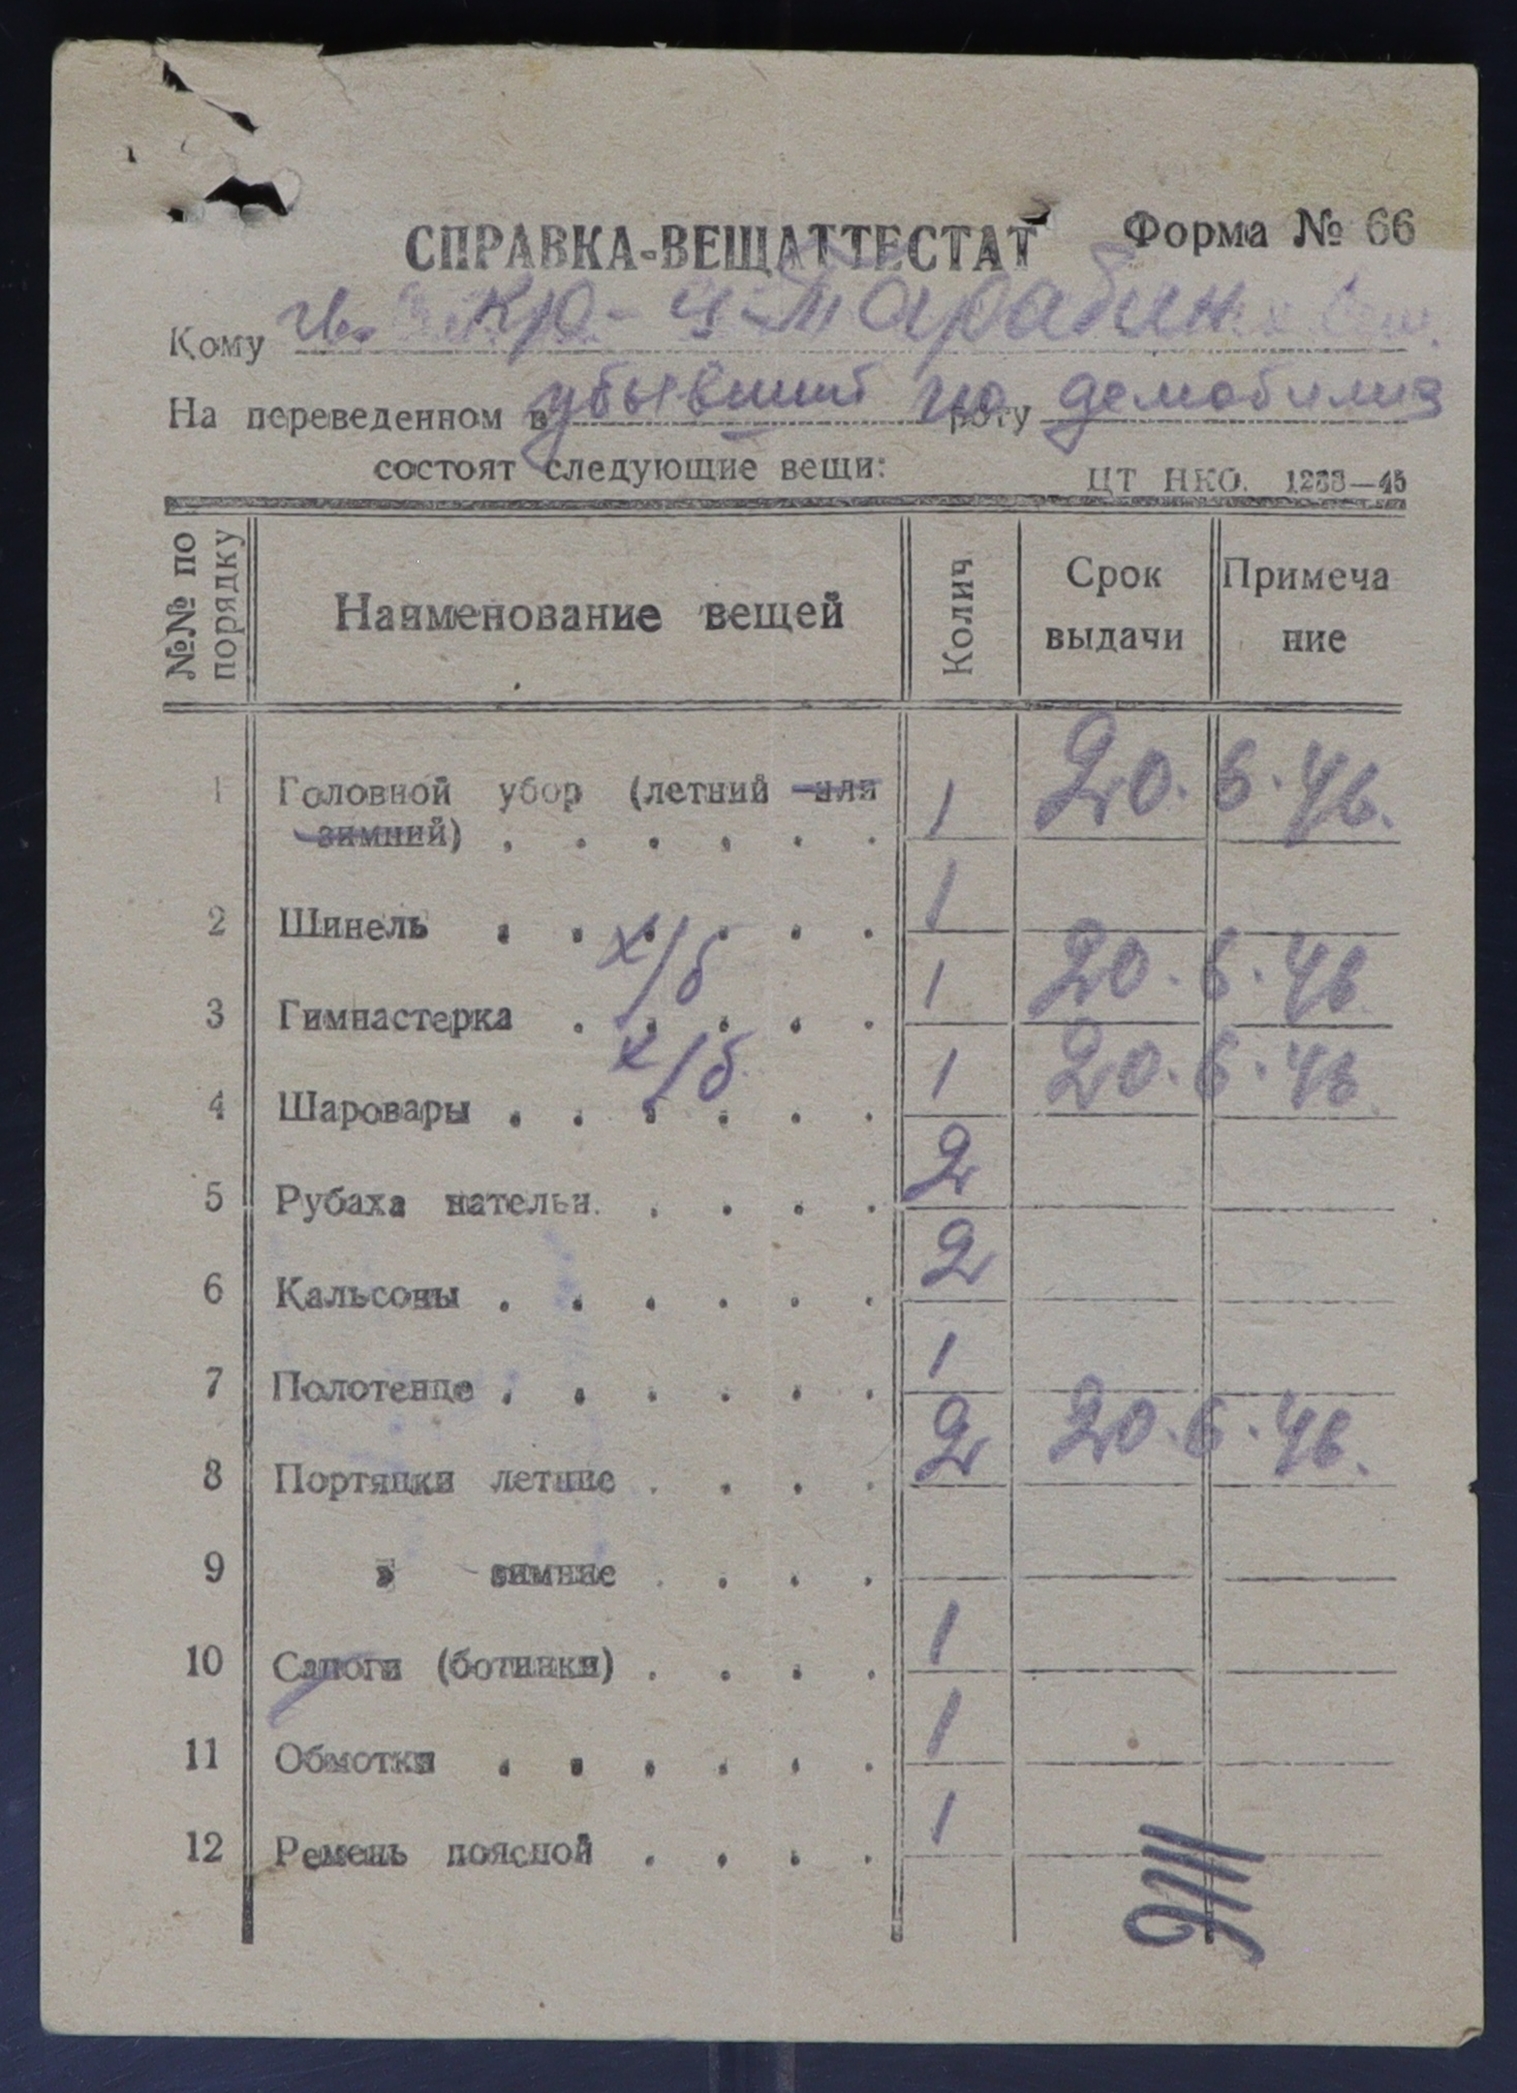 СПРАВКА-ВЕЩАТТЕСТАТ Форма № 66
Кому гв. кр-ц Тарабин
На переведенном в убывший по роту демобилиз
состоят следующие вещи: ЦТ НКО. 1233—45
№№ по порядку Наименование вещей Колич Срок выдачи Примеча ние
1 Головной убор (летний или 1 20.6.46.
зимний) . . . . . .
2 Шинель . . . . . . 1
3 Гимнастерка х/б . . . . . 1 20.6.46
4 Шаровары х/б . . . . . . 1 20.6.46
5 Рубаха нательн. . . . . 2
6 Кальсоны . . . . . . 2
7 Полотенце . . . . . . 1
8 Портянки летние . . . . 2 20.6.46.
9 » зимние . . . .
10 Сапоги (ботинки) . . . . 1
11 Обмотки . . . . . . 1
12 Ремень поясной . . . . 1